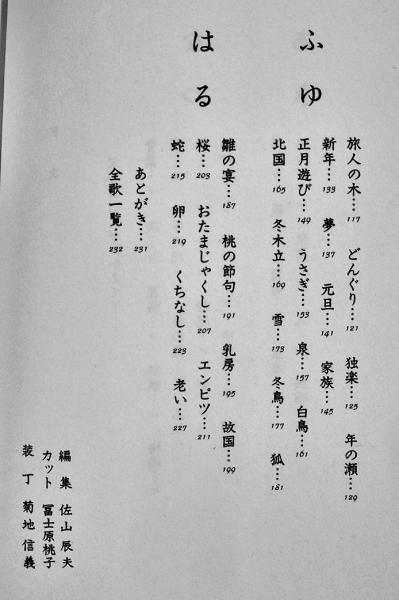 ふゆ
旅人の木…117 どんぐり…121 独楽…125 年の瀬…129
新年…133 夢…137 元旦…141 家族…145
正月遊び…149 うさぎ…153 泉…157 白鳥…161
北国…165 冬木立…169 雪…173 冬鳥…177 狐…181
はる
雛の宴…187 桃の節句…191 乳房…195 故国…199
桜…203 おたまじゃくし…207 エンピツ…211
蛇…215 卵…219 くちなし…223 老い…227
あとがき…231
全歌一覧…232
編集 佐山辰夫
カット 冨士原桃子
装丁 菊地信義